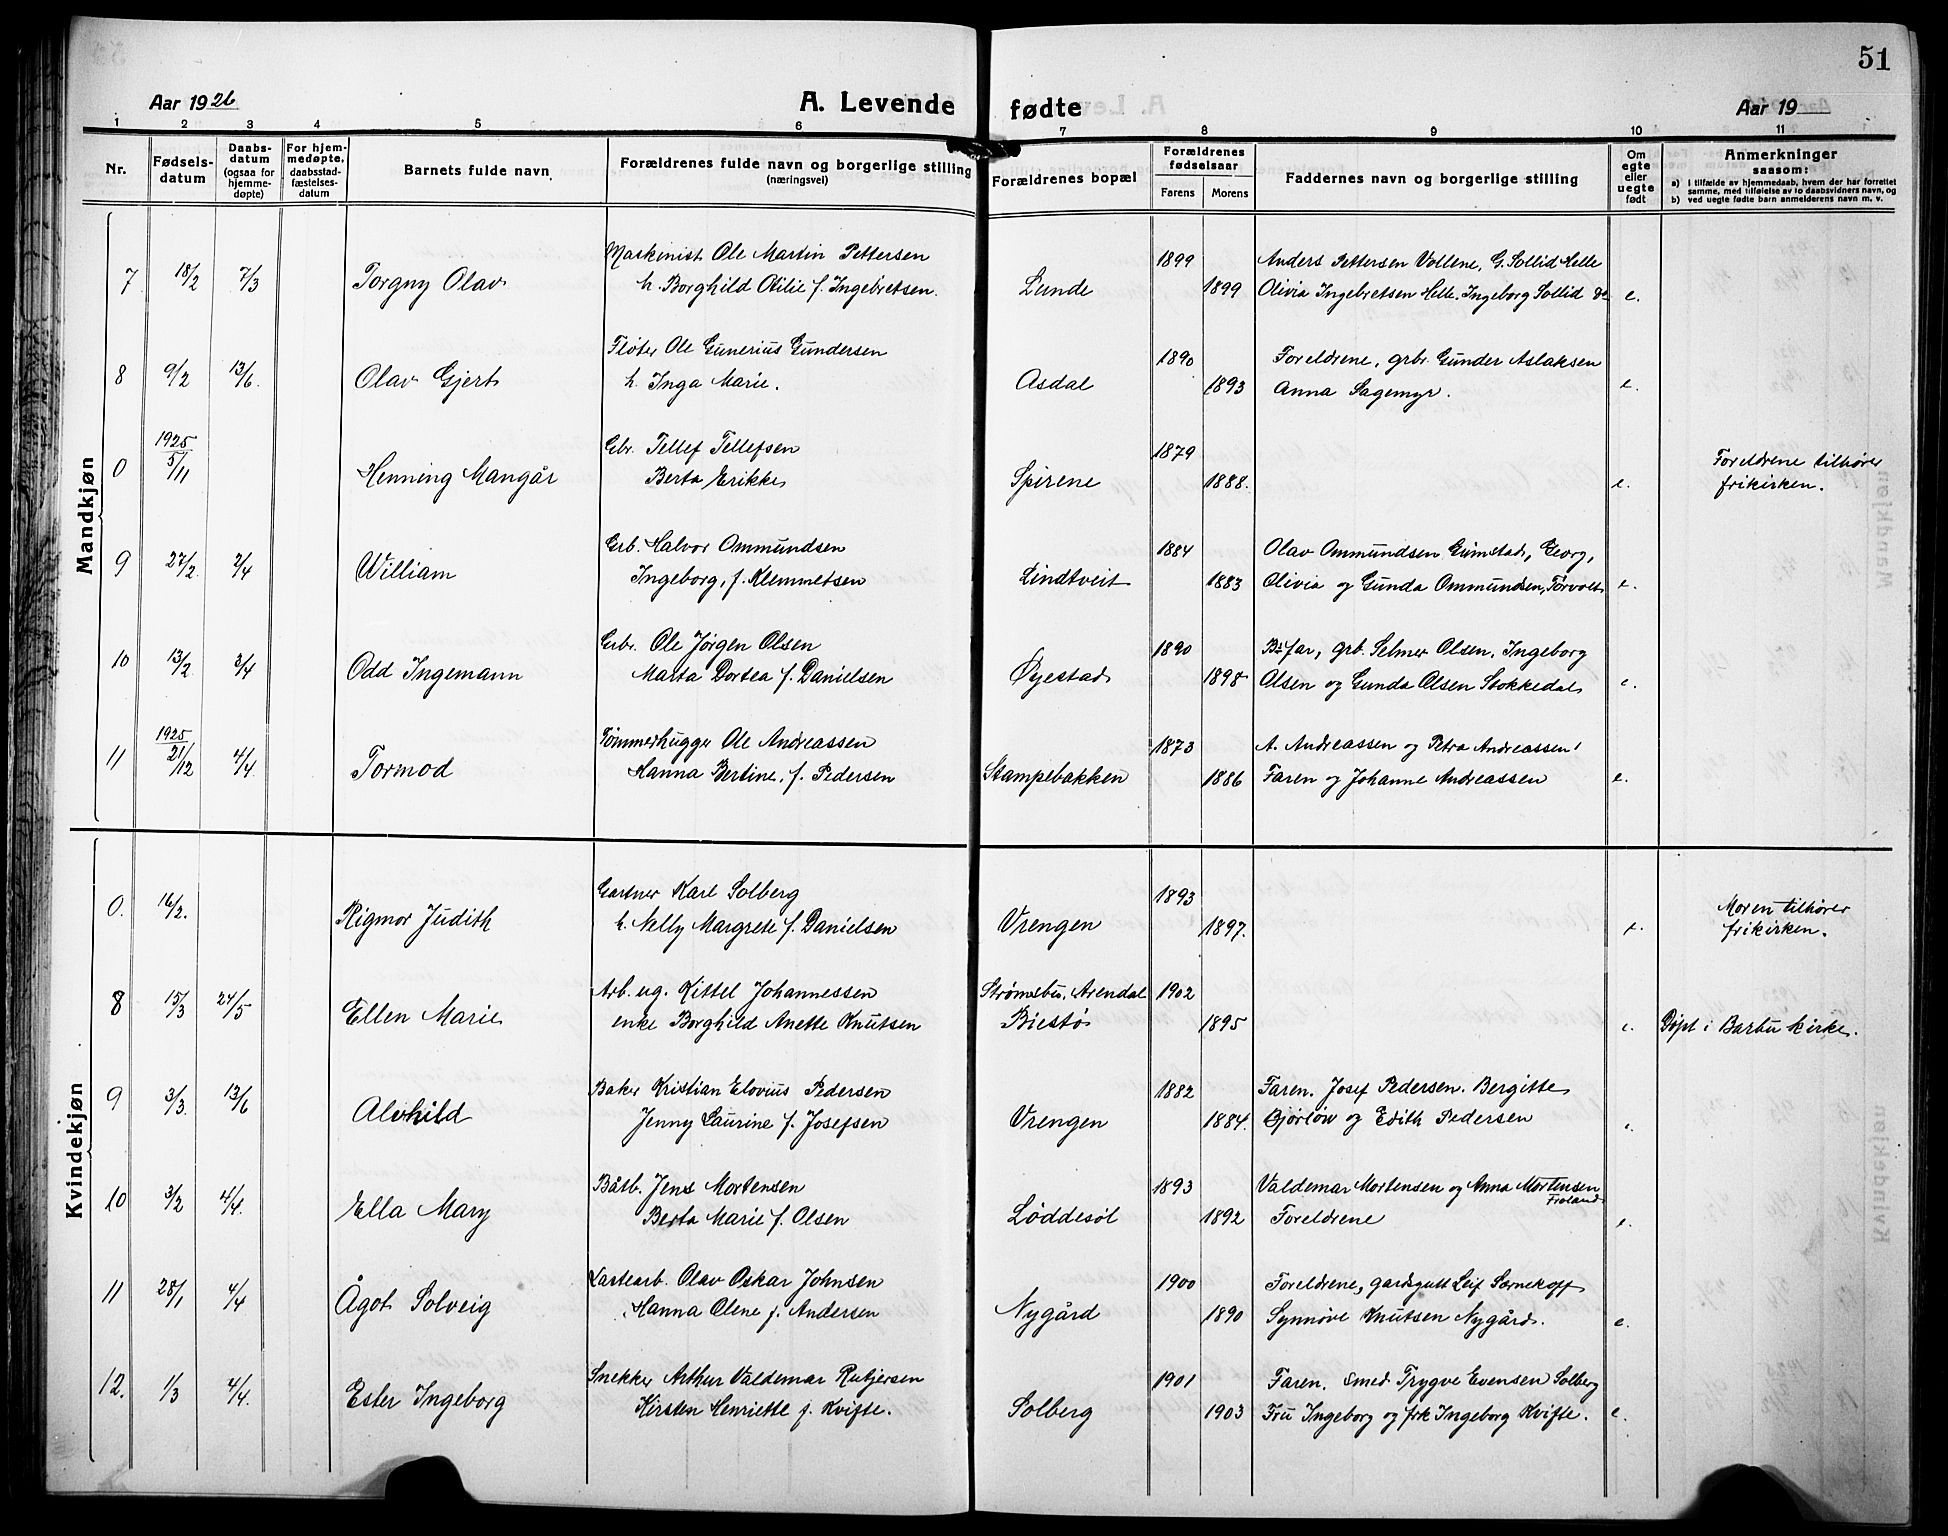 51
Aar 1926
A. Levende fødte
Aar 19
1 2 3 4 5 6 7 8 9 10 11
Nr.
Fødsels-
datum
Daabs-
datum
(ogsaa for
hjemme-
døpte)
For hjem-
medøpte,
daabsstad-
fæstelses-
datum
Barnets fulde navn
Forældrenes fulde navn og borgerlige stilling
(næringsvei)
Forældrenes bopæl
Forældrenes
fødselsaar
Farens Morens
Faddernes navn og borgerlige stilling
Om
egte
eller
uegte
født
Anmerkninger
saasom:
a) i tilfælde av hjemmedaab, hvem der har forrettet
samme, med tilføielse av to daabsvidners navn, og
b) ved uegte fødte barn anmelderens navn m. v.
Mandkjøn
Maskinist Ole Martin Pettersen 1899 Anders Pettersen Vollene, G. Sollid Helle
7 18/2 7/3 Torgny Olav h. Borghild Otilie f. Ingebretsen. Lunde 1899 Olivia Ingebretsen Helle. Ingeborg Sollid do e.
Fløter Ole Gunerius Gundersen 1890 Foreldrene, grbr. Gunder Aslaksen
8 9/2 13/6. Olav Gjert h. Inga Marie. Asdal 1893 Anna Sagemyr. e.
1925 Gbr. Tellef Tellefsen 1879 Foreldrene tilhører
0 5/11 Henning Mangår Berta Erikke Spirene 1888. e. frikirken.
Grb. Halvor Ommundsen 1884 Olav Ommundsen Grimstad, Georg,
9 27/2. 2/4 William Ingeborg, f. Klemmetsen Lindtveit 1883 Olivia og Gunda Ommundsen, Torvolt e.
Grbr. Ole Jørgen Olsen 1890 B. far, grb. Selmer Olsen. Ingeborg
10 13/2. 3/4 Odd Ingemann Marta Dortea f. Danielsen Øyestad 1898 Olsen og Gunda Olsen Stokkedal e.
1925 Tømmerhugger Ole Andreassen 1873 A. Andreassen og Petra Andreassen
11 21/12 4/4. Tormod Hanna Bertine, f. Pedersen Stampebakken 1886 Faren og Johanne Andreassen e.
Kvindekjøn
Gartner Karl Solberg 1893 Moren tilhører
0. 16/2. Rigmor Judith h. Nelly Margrete f. Danielsen Vrengen 1897. e. frikirken.
Arb. ug. Kittel Johannessen Strømsbu, Arendal 1902
8 15/3 24/5 Ellen Marie enke Borghild Anette Knutsen Biestø 1895 e. Døpt i Barbu kirke.
Baker Kristian Elovius Pedersen 1882 Faren. Josef Pedersen. Bergitte
9 3/3. 13/6 Alvhild Jenny Laurine f. Josefsen Vrengen 1884. og Edith Pedersen e.
Båtb. Jens Mortensen 1893 Valdemar Mortensen og Anna Mortensen
Froland
10 3/2 4/4. Ella Mary Berta Marie f. Olsen Løddesøl 1892 Foreldrene e.
Lastearb. Olav Oskar Johnsen 1900 Foreldrene, gardsgutt Leif Sørnekoff
11 28/1 4/4 Ågot Solveig Hanna Olene f. Andersen Nygård 1890 Synnøve Knutsen Nygård. e.
Snekker Arthur Valdemar Rubjersen 1901 Faren. Smed Trygve Evensen Solberg
12. 1/3 4/4. Ester Ingeborg Kirsten Henriette f. Kvifte. Solberg 1903 Fru Ingeborg og frk Ingeborg Kvifte. e.